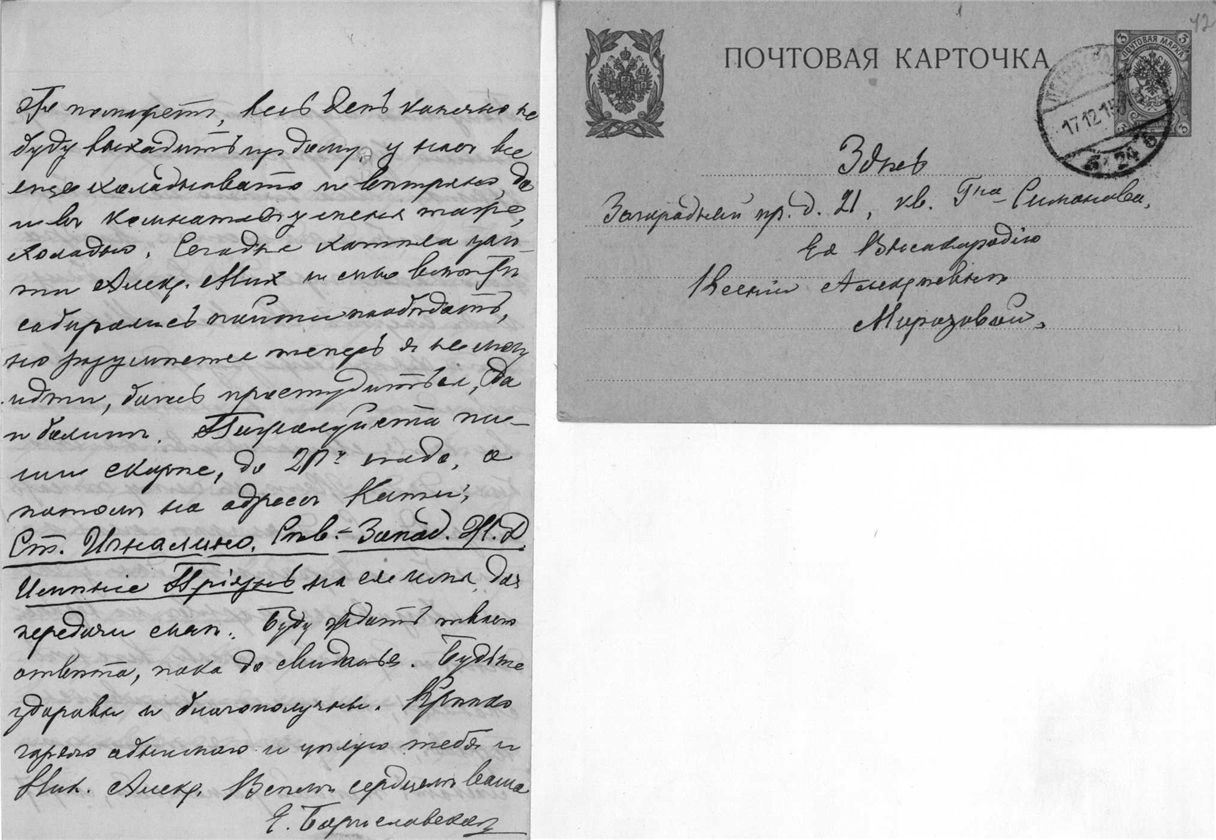 весь день конечно не
буду выходить из дому, у нас все
еще холодновато и ветрянно, да
и въ комнатахъ у меня тоже
холодно. Сегодня хотела уй-
ти Алекс. Мих и мы вместе
собирались пойти пообедать,
но разумеется теперь я не могу
идти, боясь простудиться, да
и болит. Пожалуйста пи-
ши скорее, до 20го сюда, а
потомъ на адресъ Кати:
Ст. Игналино. Спв.- Запад. Ж. Д.
Имѣние на ея имя, для
передачи мнѣ. Буду ждать твоего
ответа, пока до свиданья. Будьте
здоровы и благополучны. Крѣпко
горячо обнимаю и цѣлую тебя и
Ник. Алекс. Всемъ сердцемъ ваша
Е. Бориславская
42
ПОЧТОВАЯ КАРТОЧКА
3 ПОЧТОВАЯ МАРКА 3
17.12.15
Здѣсь
Загородный пр. д. 21, кв. Гна Симонова,
Ея Высокородію
Ксеніи Алексѣевнѣ
Морозовой.